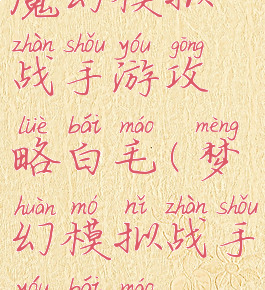 魔幻模拟
zhàn shǒu yóu gōng
战手游攻
lüè bái máo mèng
略白毛(梦
huàn mó nǐ zhàn shǒu
幻模拟战手
yóu bái máo